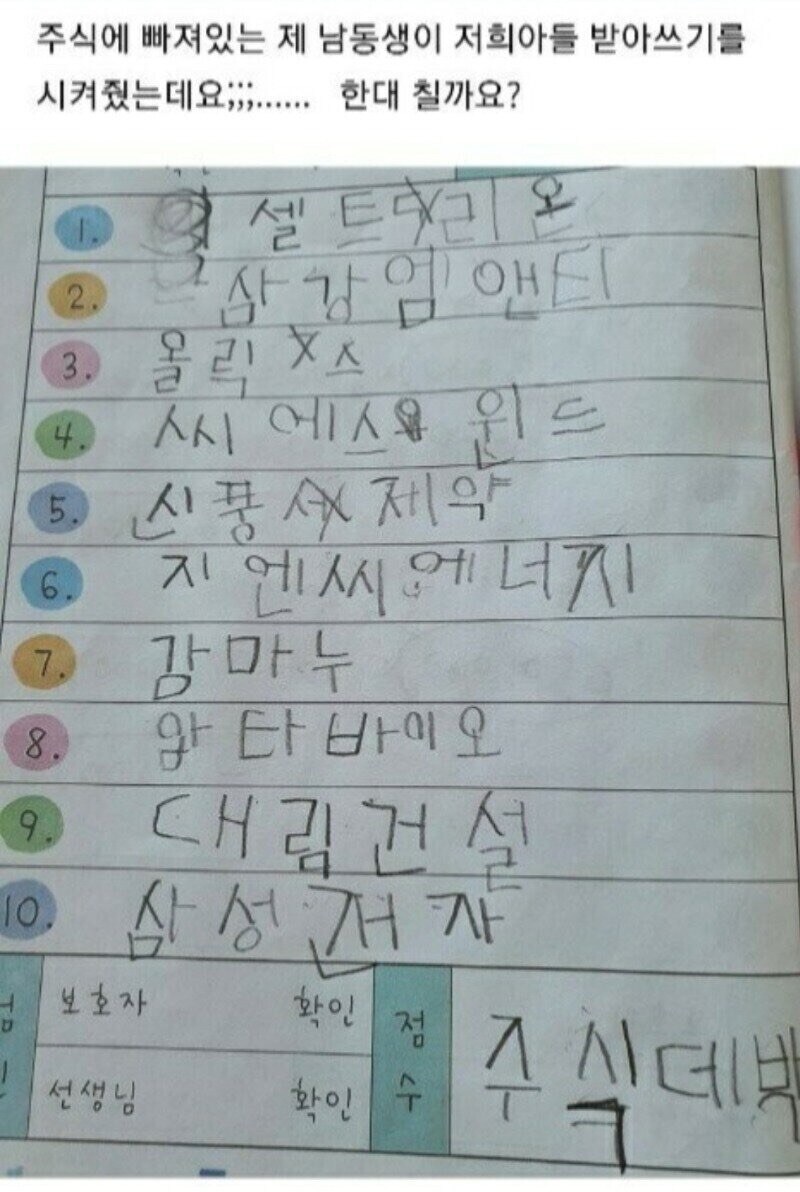 주식에 빠져있는 제 남동생이 저희아들 받아쓰기를
시켜줬는데요;;;...... 한대 칠까요?
1. 셀트리온
2. 삼강엠앤티
3. 올릭스
4. 씨에스 윈드
5. 신풍제약
6. 지엔씨에너지
7. 감마누
8. 압타바이오
9. 대림건설
10. 삼성전자
보호자 확인
점수
주식데박
선생님 확인